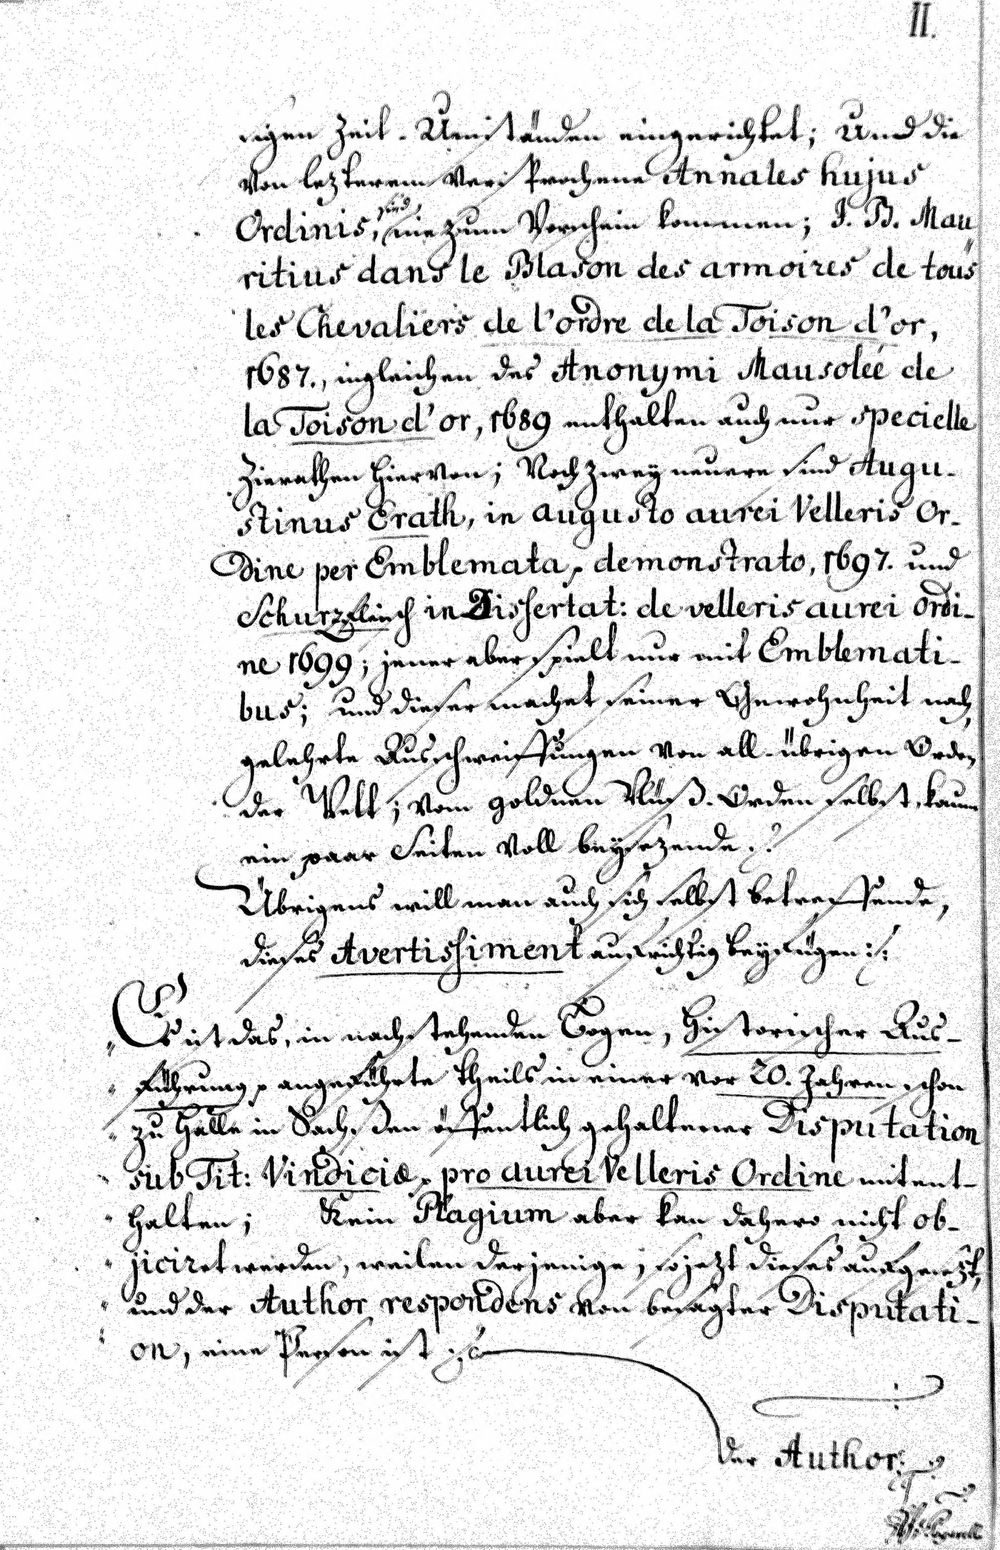 II.
sigen Zeit-Umständen eingerichtet; Und die
von lezterem versprochene Annales hujus
Ordinis, sind nie zum Vorschein kommen; J. B. Mau
ritius dans le Blason des armoires de tous
les Chevaliers de l'ordre de la Toison d'or,
1687., ingleichen des Anonymi Mausoleé de
la Toison d'or, 1689 enthalten auch nur specielle
Zierathen hiervon; Noch zwey neuere sind Augu-
stinus Erath, in augusto aurei Velleris Or-
dine per Emblemata, demonstrato, 1697. und
Schurzfleisch in Dissertat: de velleris aurei Ordi-
ne 1699; jener aber spielt nur mit Emblemati-
bus; und dieser machet seiner Gewohnheit nach,
gelehrte Ausschweiffungen von all-übrigen Orden
der Welt; vom goldnen Vlüß-Orden selbst, kaum
ein paar Seiten voll beysezende.
Übrigens will man auch sich selbst betreffende,
dieses Avertissiment aufrichtig beyfügen:
Es ist das, in nachstehenden Bogen, Historischer Aus-
führung, angeführte theils in einer vor 20. Jahren schon
zu Halle in Sachßen öffentlich gehaltener Disputation
sub Tit: Vindiciæ, pro aurei Velleris Ordine mit ent-
halten; Kein Plagium aber kan dahero nicht ob-
jiciret werden, weilen derjenige, so jezt dieses aufgesezt,
und der Author respondens von besagter Disputati-
on, eine Person ist
der Author: